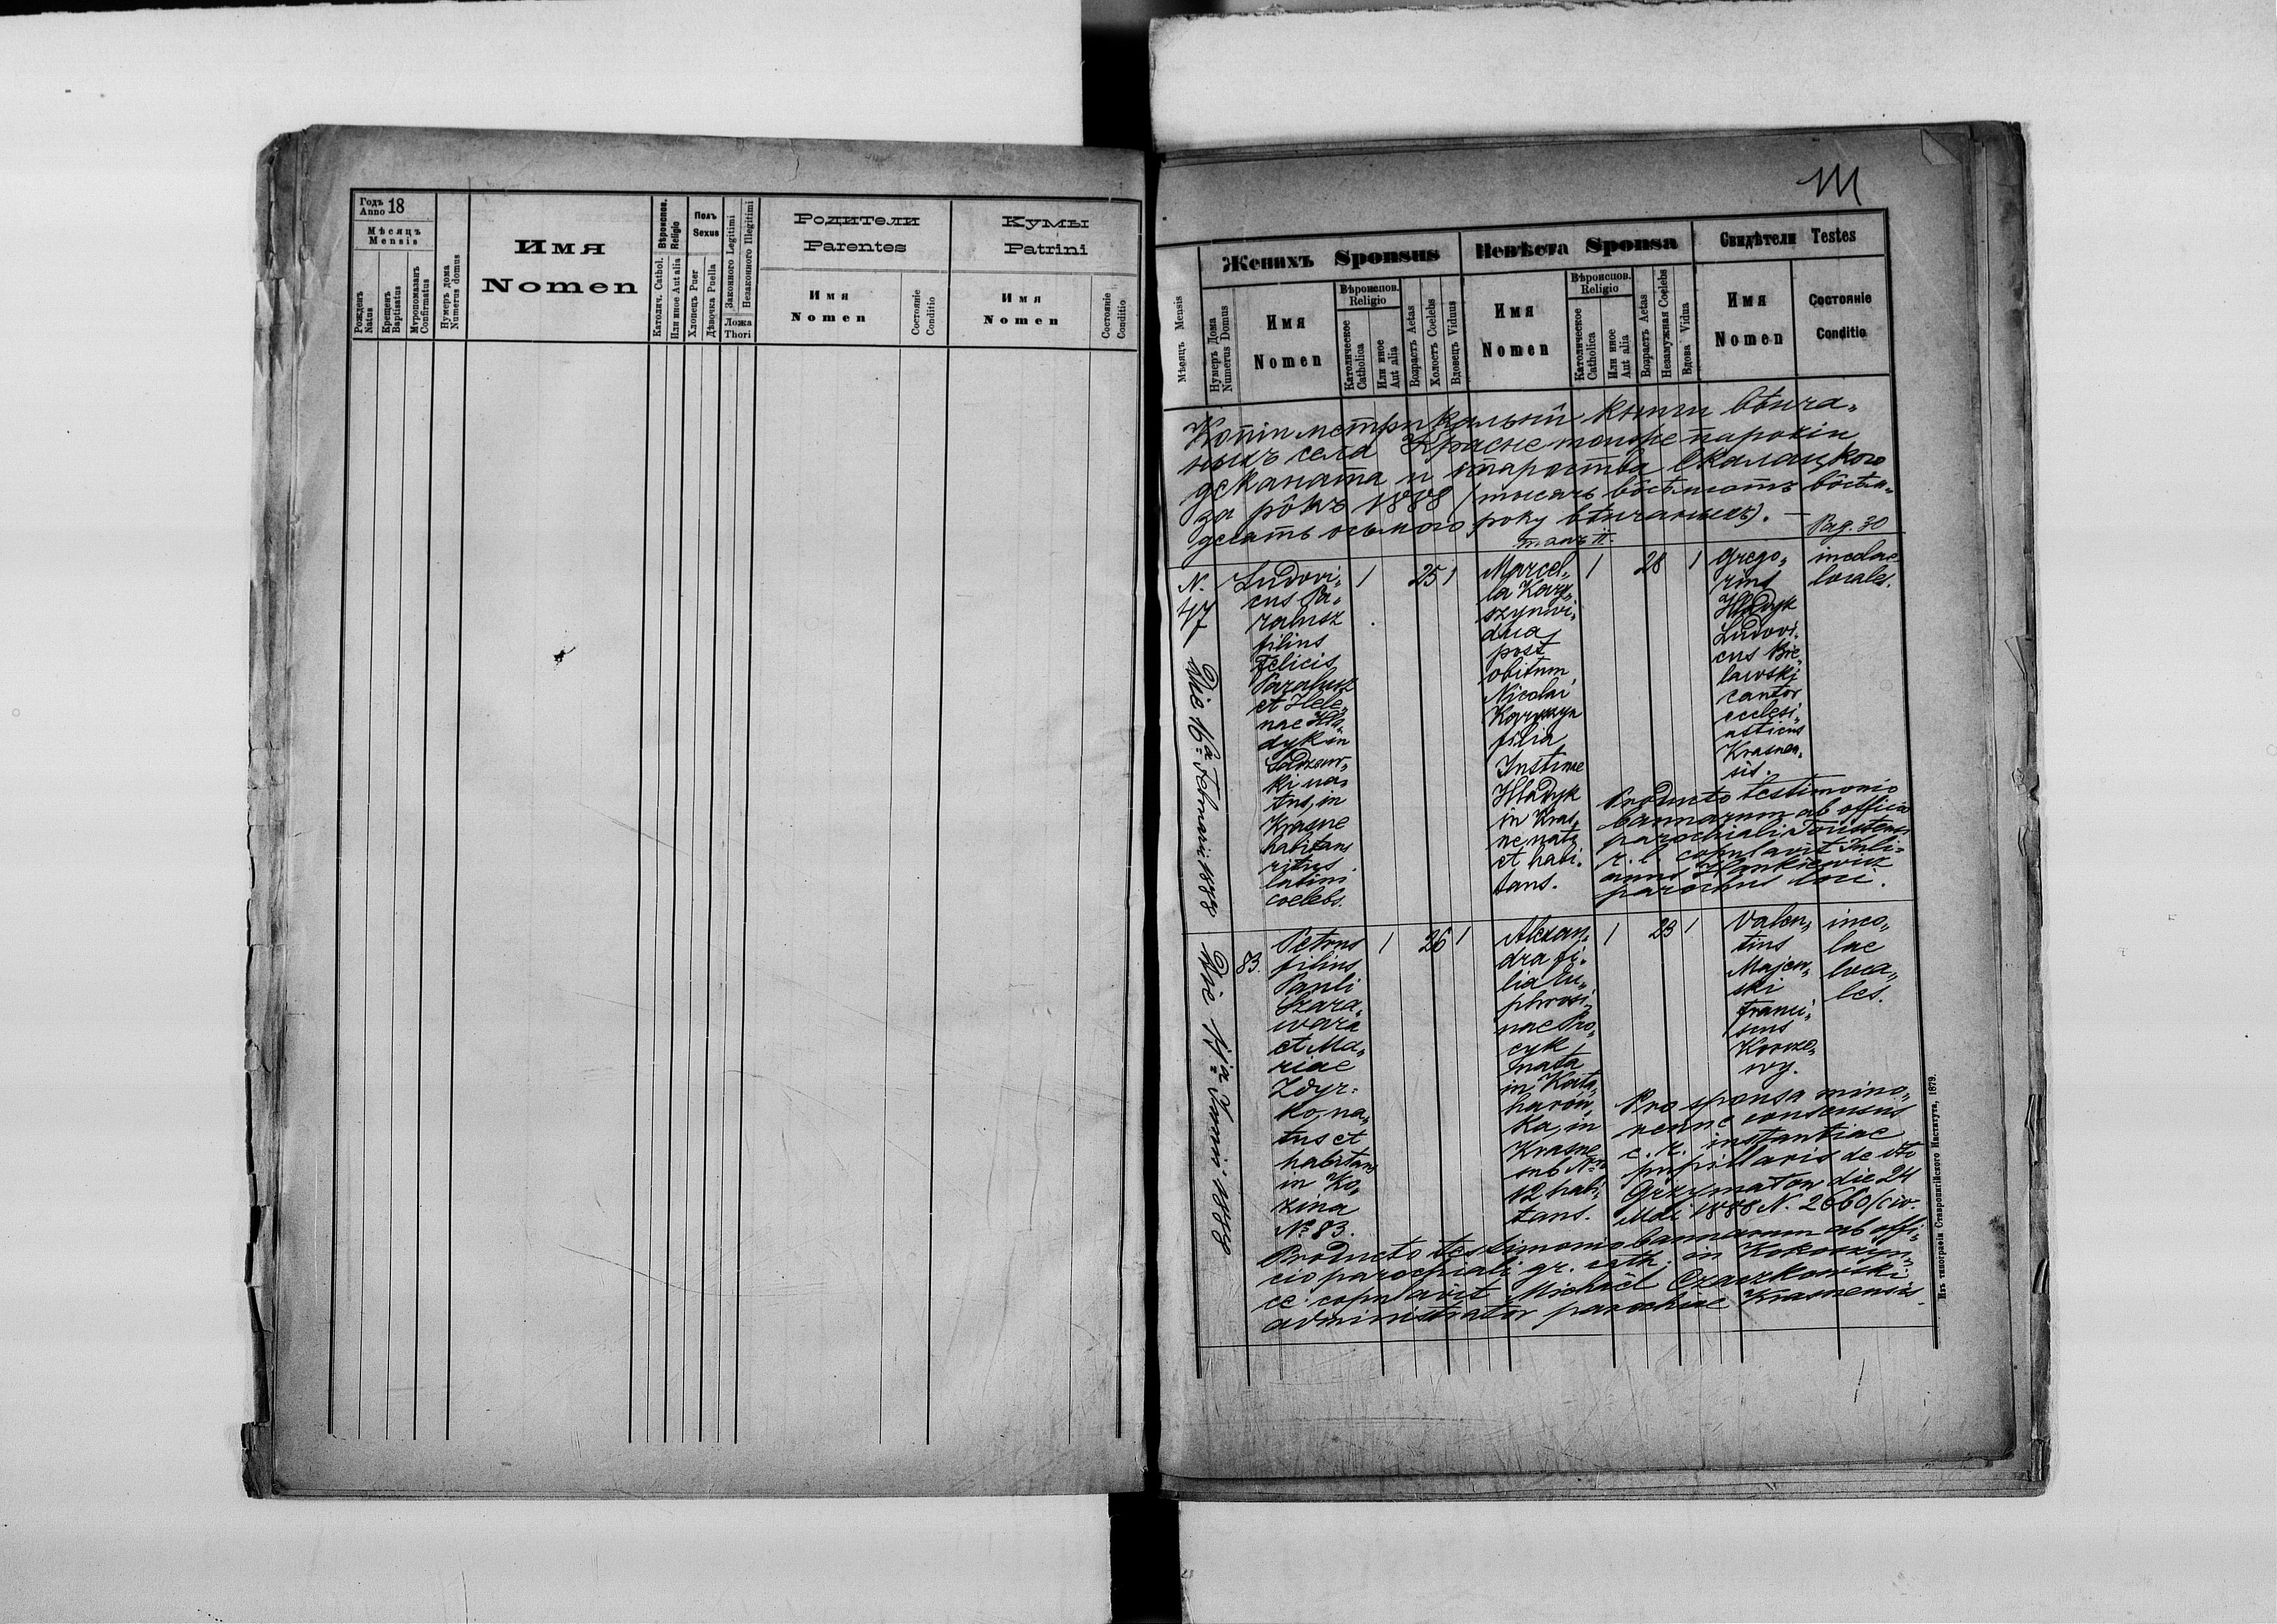 Годъ
Anno 18
Мѣсяцъ
Mensis
Рожденъ
Natus
Крещенъ
Baptisatus
Мѵропомазанъ
Confirmatus
Нумеръ дома
Numerus domus
Имя
Nomen
Вѣроиспов.
Religio
Католич. Cathol.
Или иное Aut alia
Полъ
Sexus
Хлопецъ Puer
Дѣвочка Puella
Законного Legitimi
Незаконного Illegitimi
Ложа
Thori
Родители
Parentes
Имя
Nomen
Состояніе
Conditio
Кумы
Patrini
Имя
Nomen
Состояніе
Conditio
111
Мѣсяцъ Mensis
Женихъ Sponsus
Нумеръ Дома
Numerus Domus
Имя
Nomen
Вѣроиспов.
Religio
Католическое
Catholica
Или иное
Aut alia
Возрастъ Aetas
Холостъ Coelebs
Вдовецъ Viduus
Невѣста Sponsa
Имя
Nomen
Вѣроиспов.
Religio
Католическое
Catholica
Или иное
Aut alia
Возрастъ Aetas
Незамужная Coelebs
Вдова Vidua
Свидѣтели Testes
Имя
Nomen
Состояніе
Conditio
Копія метрикальнои книги вѣнча„
ныхъ села Красне тоиже парохіи
деканата и староства Скалацкого
за рôкъ 1888 (тысячь вôсѣмсотъ вôсѣм„
десятъ осьмого року вѣнчаныхъ). —
томъ II.
Pag. 30
N.
47
Die 16ta Februarii 1888
Ludovi„
cus Pa„
rabusz
filius
Felicis
Parabusz
et Hele„
nae Hla„
dyk in
Sadzaw„
ki na„
tus, in
Krasne
habitans
ritus
latini
coelebs.
1
25
1
Marcel„
la Karp„
szyn vi„
dua
post
obitum
Nicolai
Karpszyn
filia
Justinae
Hladyk
in Kras„
ne nata
et habi„
tans.
1
28
1
Grego„
rius
Hladyk
Ludovi„
cus Bie„
lawski
cantor
ecclesi„
asticus
Krasnen„
sis.
incolae
locales.
Producto testimonio
bannorum ab officio
parochiali Toustens
r. l. copulavit Juli„
anus Hankiewicz
parochus loci.
Die 17ma Junii 1888
83.
Petrus
filius
Pauli
Szara„
wara
et Ma„
riae
Zdyr„
ko, na„
tus et
habitans
in Ko„
zina
No 83.
1
26
1
Alexan„
dra fi„
lia Eu„
phrosi„
nae Pro„
cyk,
nata
in Kata„
harów„
ka, in
Krasne
sub Nro
12 habi„
tans.
1
23
1
Valen„
tius
Majew„
ski
Franci„
scus
Korze„
ny.
inco„
lae
loca„
les.
Pro sponsa mino„
renne consensus
c. k. instantiae
pupillaris de dto
Grzymałów die 24
Mai 1888 N. 2660/civ.
Producto testimonio bannorum ab offi„
cio parochiali gr. cath. in Kokoszyn„
ce: copulavit Michaël Czaczkowski
administrator parochiae Krasnensis.
Изъ типографіи Ставропигійского Института, 1879.